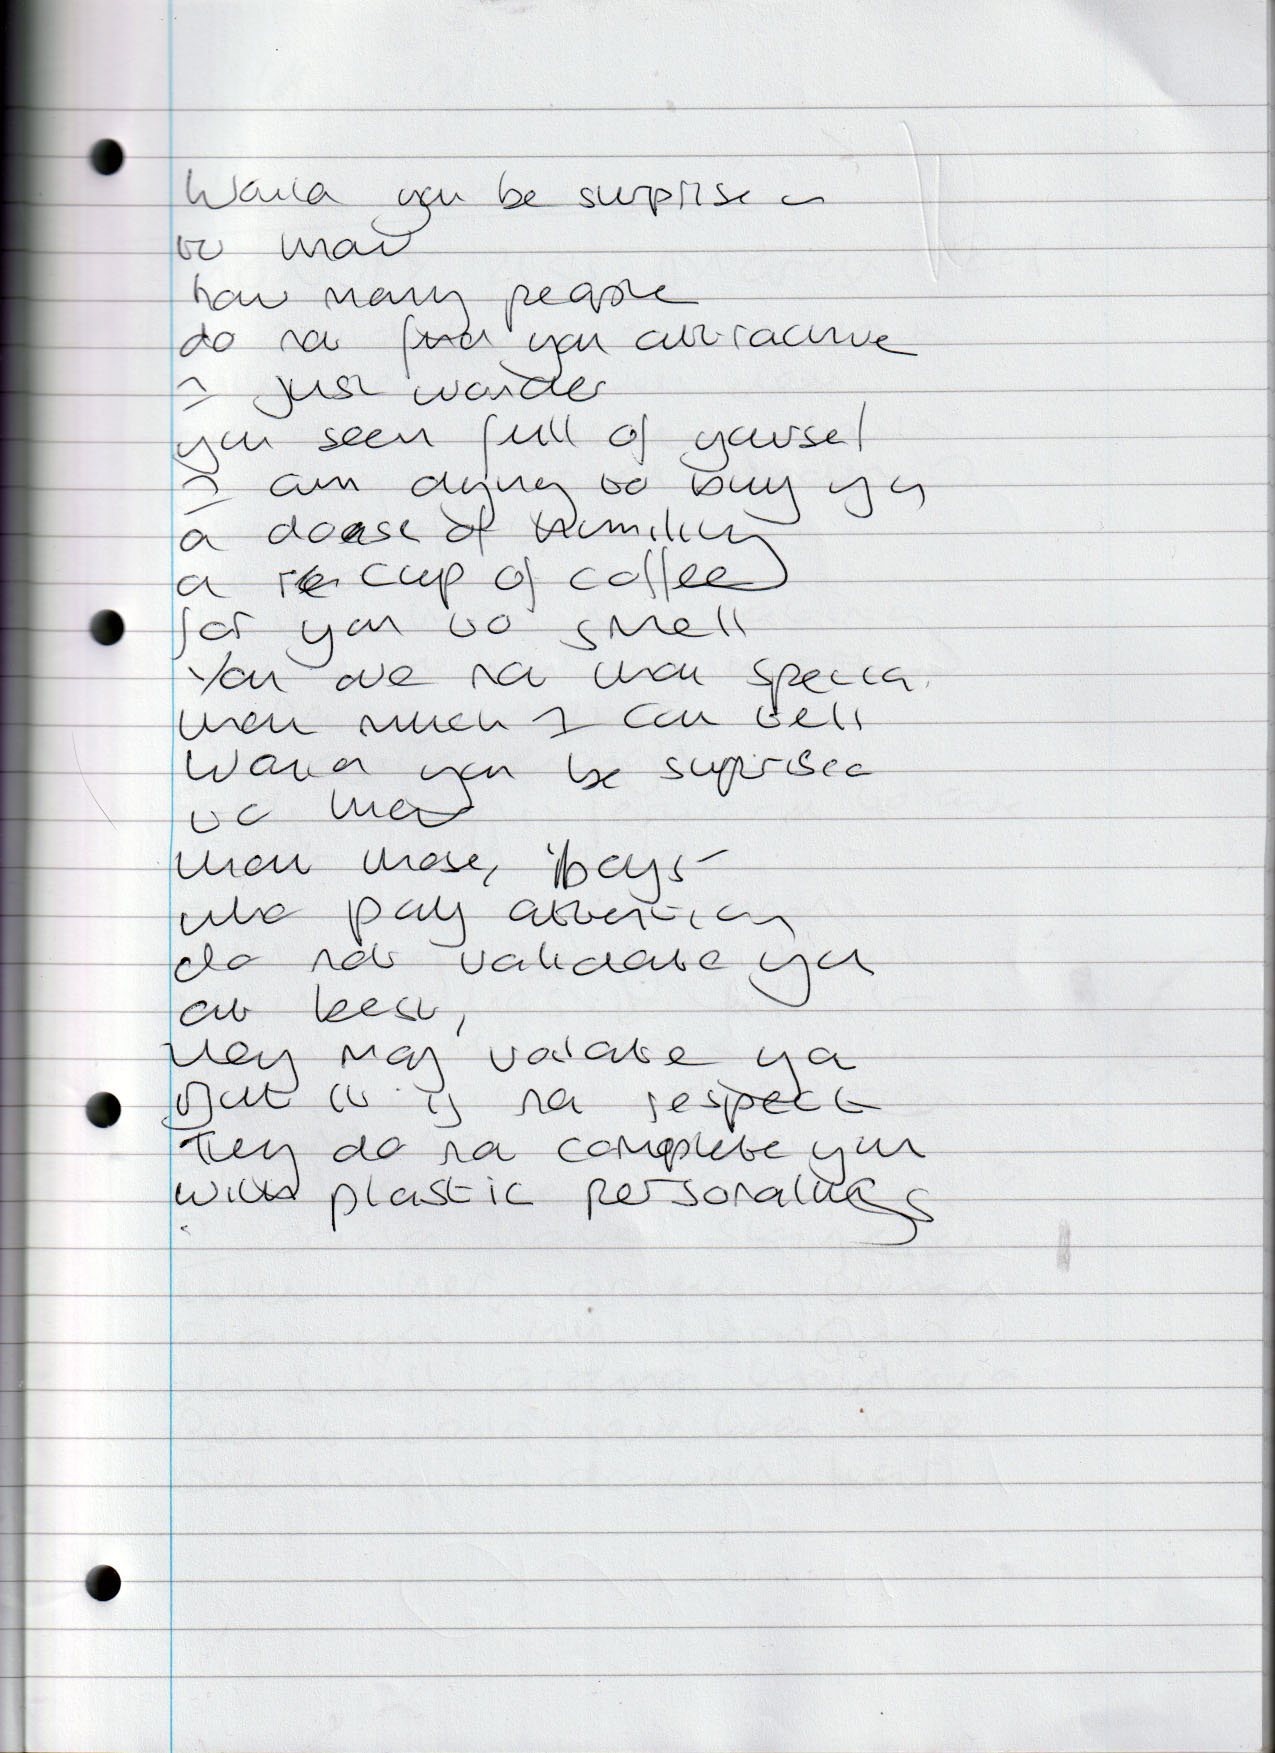 Would you be surprised
to know
how many people
do not find you attractive
I just wonder
you seem full of yourself
I am dying to buy you
a dose of humility
a cup of coffee
for you to smell
You are not that special
that much I can tell
Would you be surprised
to know
that those, "boys"
who pay attention
do not validate you
at best,
they may validate you
But it is not respect
They do not complete you
with plastic personalities